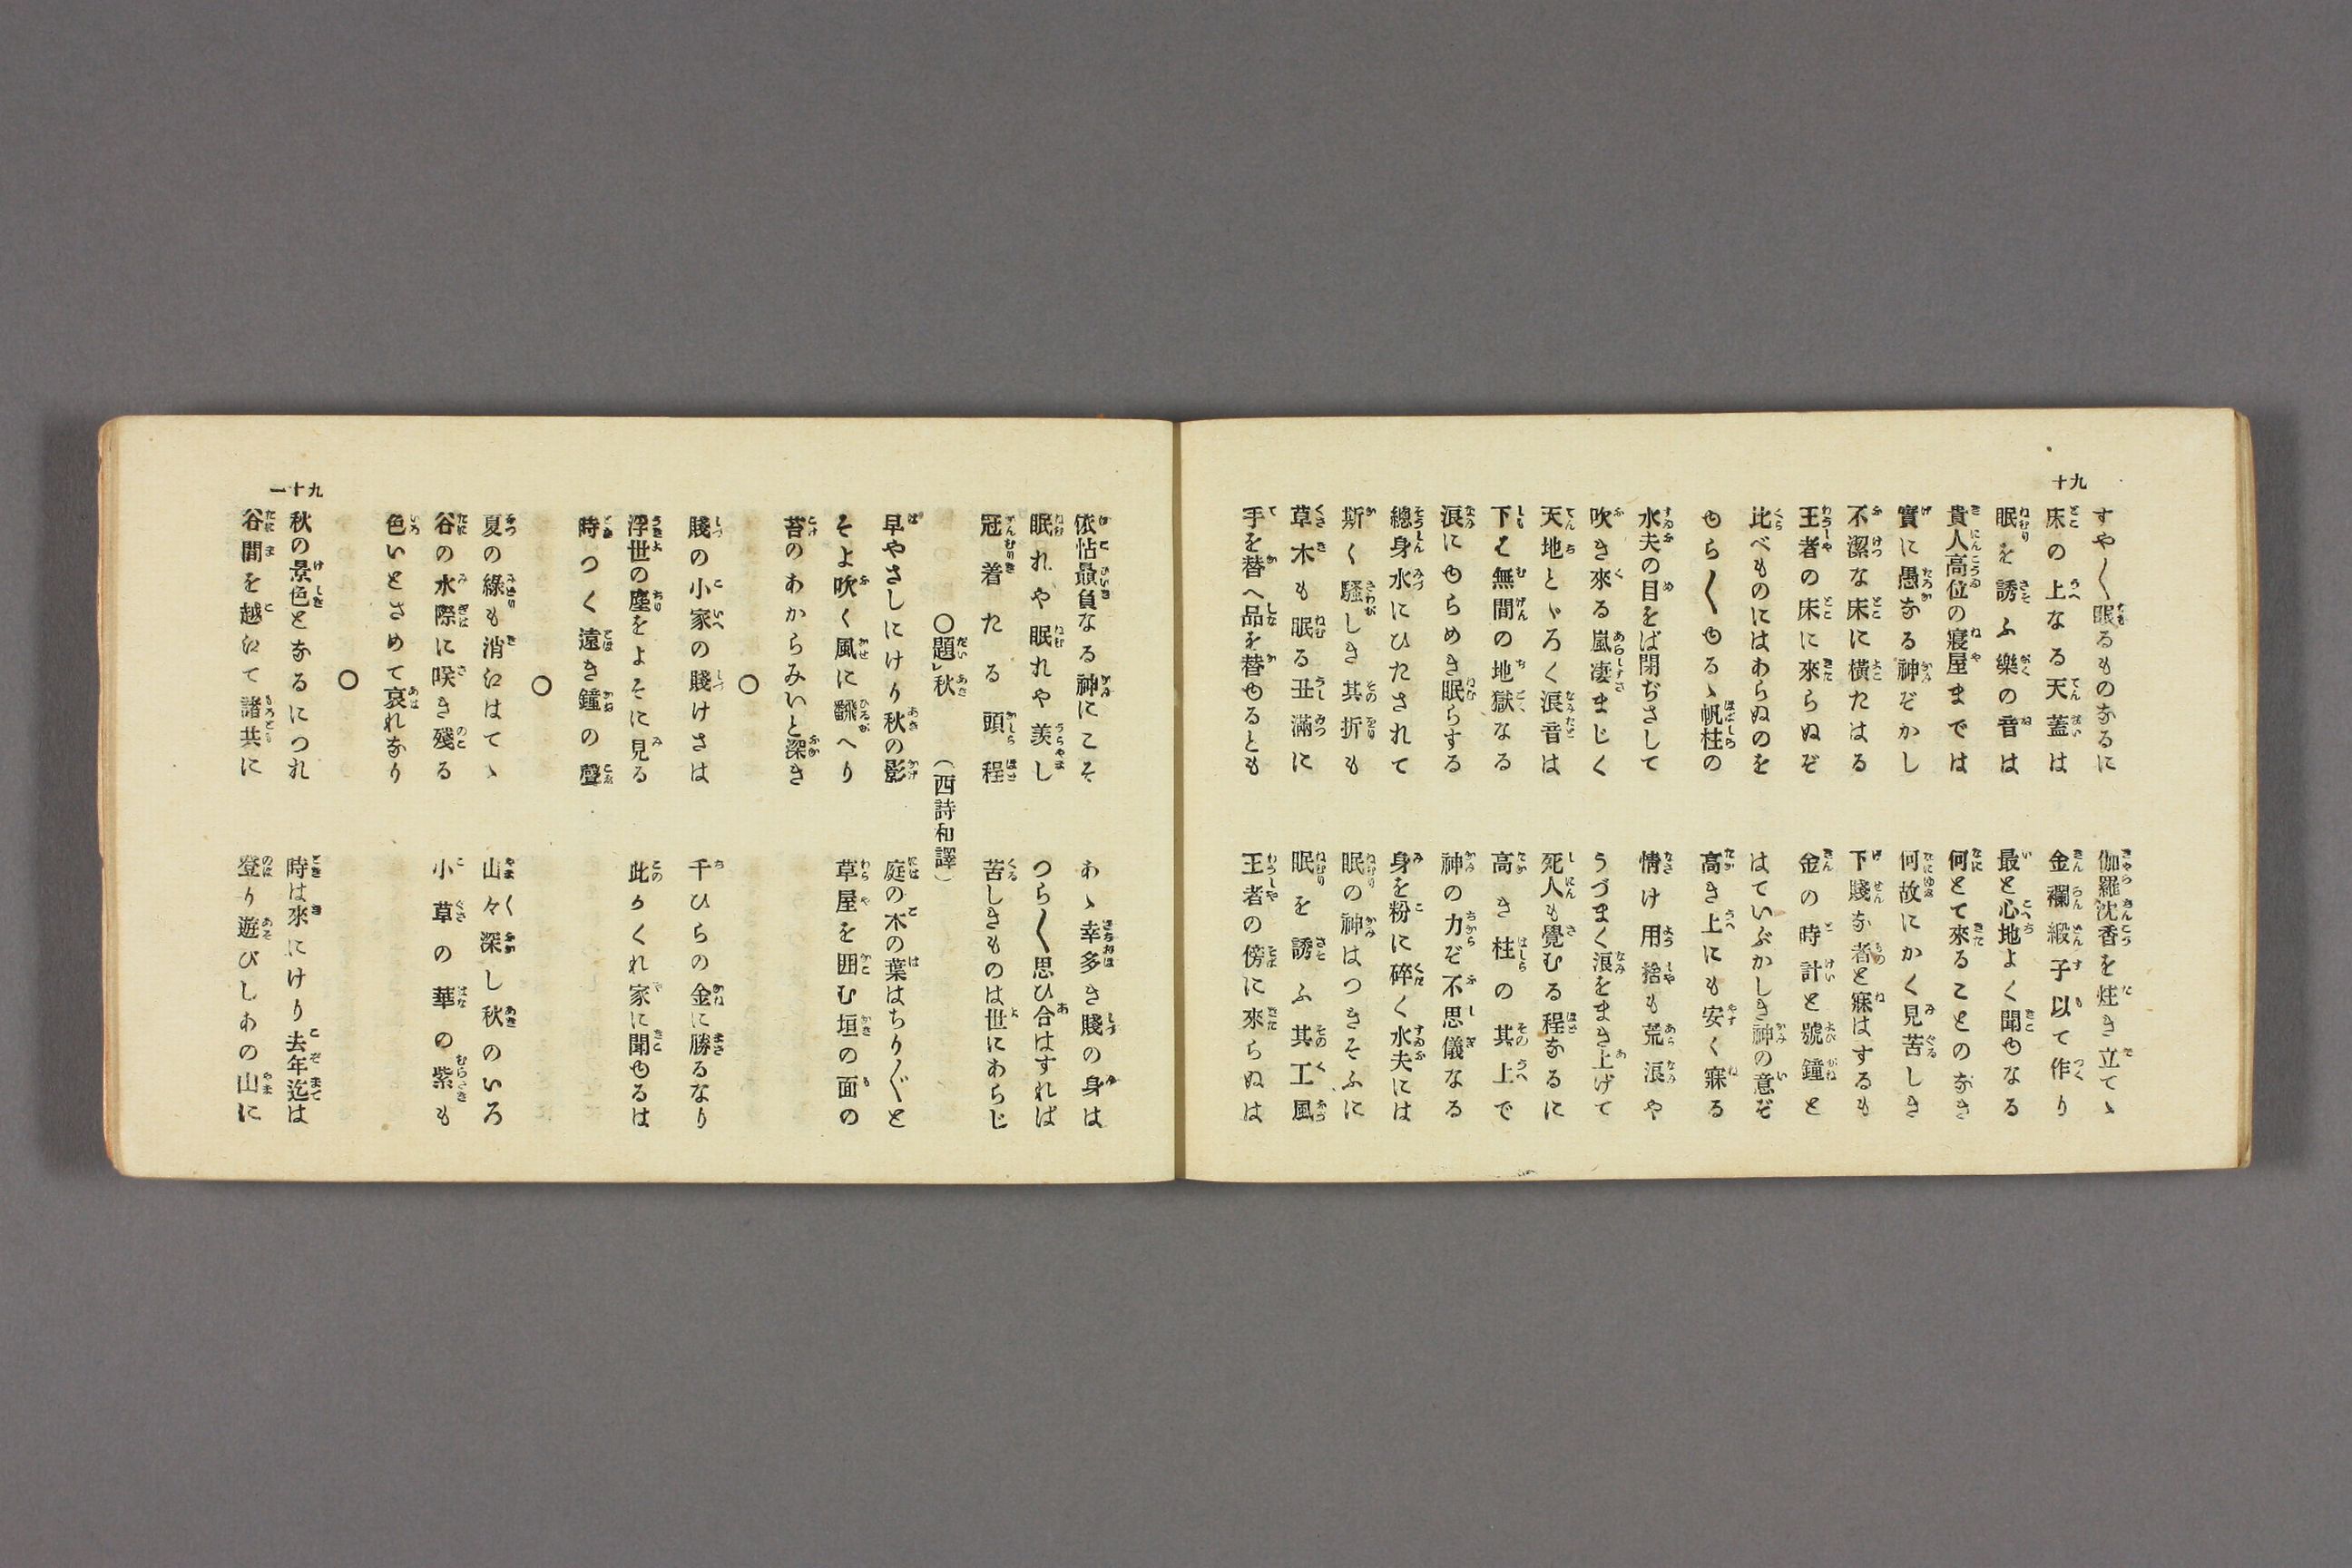 九十
すや〱眠るものなるに　伽羅沈香を炷き立てゝ
床の上なる天蓋は　金襴緞子以て作り
眠を誘ふ樂の音は　最と心地よく聞ゆなる
貴人高位の寢屋までは　何とて來ることのなき
實に愚なる神ぞかし　何故にかく見苦しき
不潔な床に横たはる　下賤な者と寐はするも
王者の床に來らぬぞ　金の時計と號鐘と
比べものにはあらぬのを　はていぶかしき神の意ぞ
ゆら〱ゆるゝ帆柱の　高き上にも安く寐る
水夫の目をば閉ぢさして　情け用捨も荒浪や
吹き來る嵐凄まじく　うづまく浪をまき上げて
天地とゞろく浪音は　死人も覺むる程なるに
下は無間の地獄なる　高き柱の其上で
浪にゆらめき眠らする　神の力ぞ不思儀なる
總身水にひたされて　身を粉に碎く水夫には
斯く騷しき其折も　眠の神はつきそふに
草木も眠る丑滿に　眠を誘ふ其工風
手を替へ品を替ゆるとも　王者の傍に來らぬは
依怙最負なる神にこそ　あゝ幸多き賤の身は
眠れや眠れや羨し　つら〱思ひ合はすれば
冠着たる頭程　苦しきものは世にあらじ
○題㆑秋　（西詩和譯）
早やさしにけり秋の影　庭の木の葉はちり〲と
そよ吹く風に飜へり　草屋を囲む垣の面の
苔のあからみいと深き
○
賤の小家の賤けさは　千ひらの金に勝るなり
浮世の塵をよそに見る　此かくれ家に聞ゆるは
時つく遠き鐘の聲
○
夏の綠も消えはてゝ　山々深し秋のいろ
谷の水際に咲き殘る　小草の華の紫も
色いとさめて哀れなり
○
九十一
秋の景色となるにつれ　時は來にけり去年迄は
谷間を越えて諸共に　登り遊びしあの山に